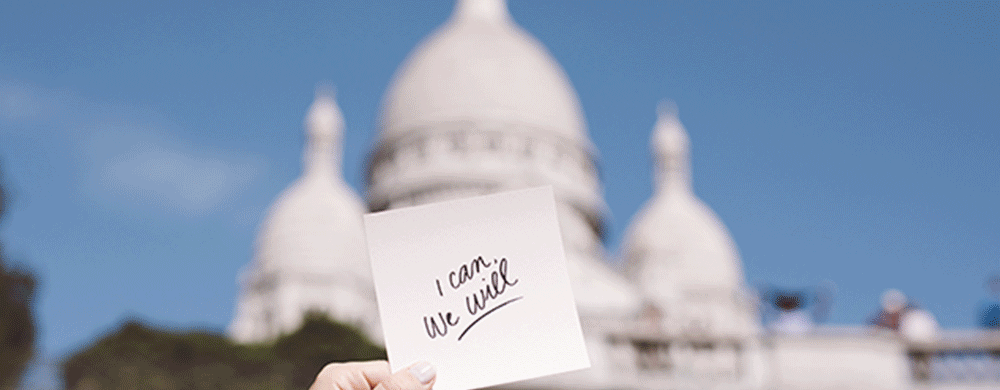 I can.
We will